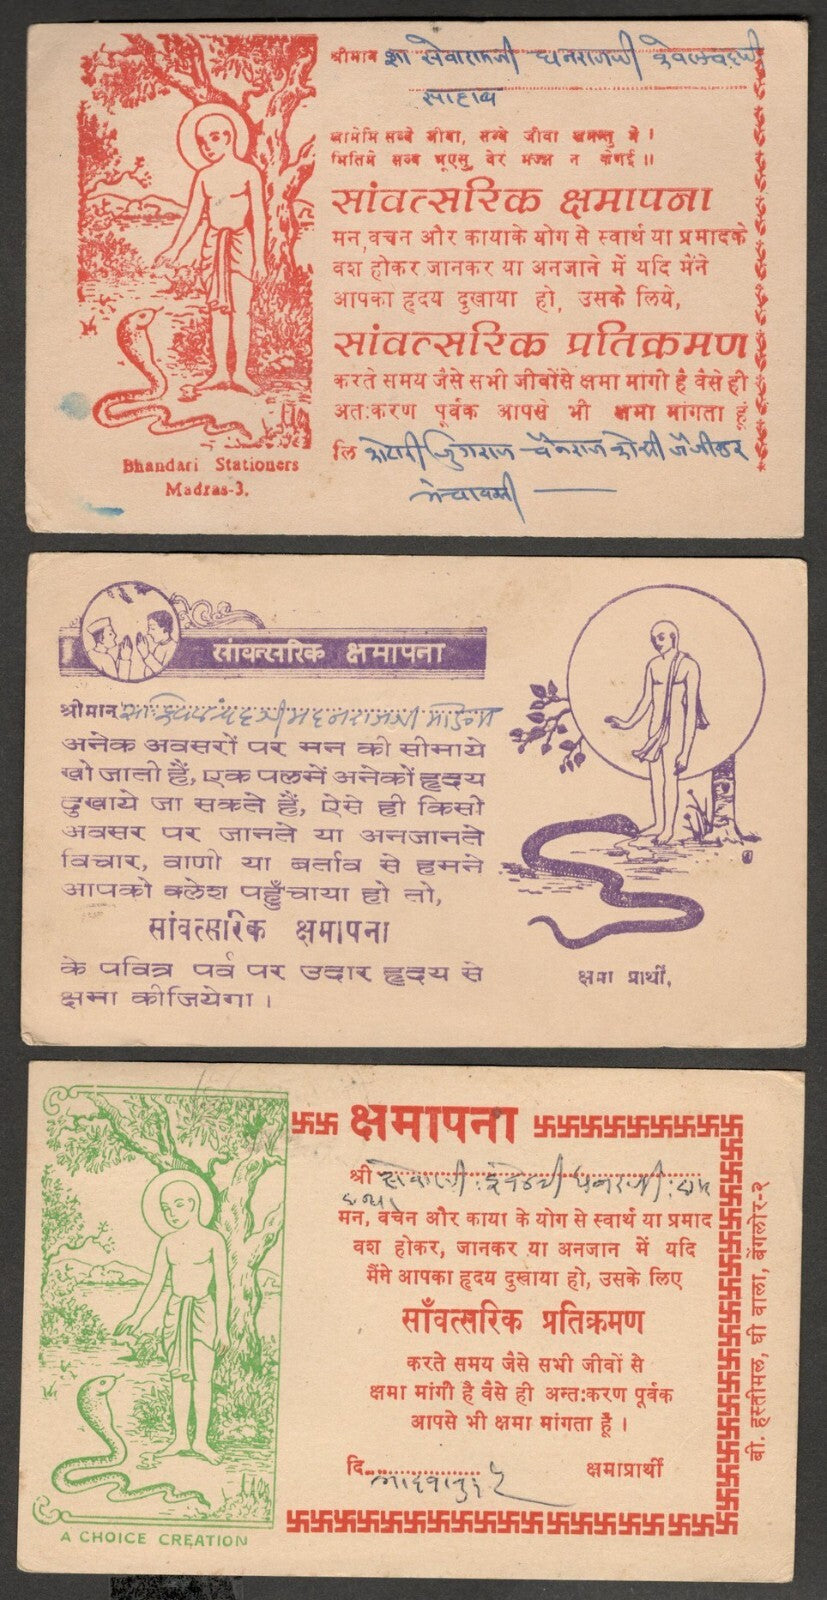 श्रीमान
साहाब
खामेमि सव्वे जीवा, सव्वे जीवा खमन्तु मे।
मितिमे सव्व भूएसु, वेरं मज्झ न केणई।।
सांवत्सरिक क्षमापना
मन, वचन और कायाके योग से स्वार्थ या प्रमादके
वश होकर जानकर या अनजाने में यदि मैंने
आपका हृदय दुखाया हो, उसके लिये,
सांवत्सरिक प्रतिक्रमण
करते समय जैसे सभी जीवोंसे क्षमा मांगी है वैसे ही
अतःकरण पूर्वक आपसे भी क्षमा मांगता हूं
लि
Bhandari Stationers
Madras-3.
सांवत्सरिक क्षमापना
श्रीमान
अनेक अवसरों पर मन की सीमाये
खो जाती हैं, एक पलमें अनेकों हृदय
दुखाये जा सकते हैं, ऐसे ही किसी
अवसर पर जानते या अनजानते
विचार, वाणी या बर्ताव से हमने
आपको क्लेश पहुँचाया हो तो,
सांवत्सरिक क्षमापना
के पवित्र पर्व पर उदार हृदय से
क्षमा कीजियेगा।
क्षमा प्रार्थी,
क्षमापना
श्री
मन, वचन और काया के योग से स्वार्थ या प्रमाद
वश होकर, जानकर या अनजान में यदि
मैंमे आपका हृदय दुखाया हो, उसके लिए
साँवत्सरिक प्रतिक्रमण
करते समय जैसे सभी जीवों से
क्षमा मांगी है वैसे ही अन्तःकरण पूर्वक
आपसे भी क्षमा मांगता हूँ।
दि.
क्षमाप्रार्थी
बी. हस्तीमल, घी वाला, बेंगलोर-२
A CHOICE CREATION